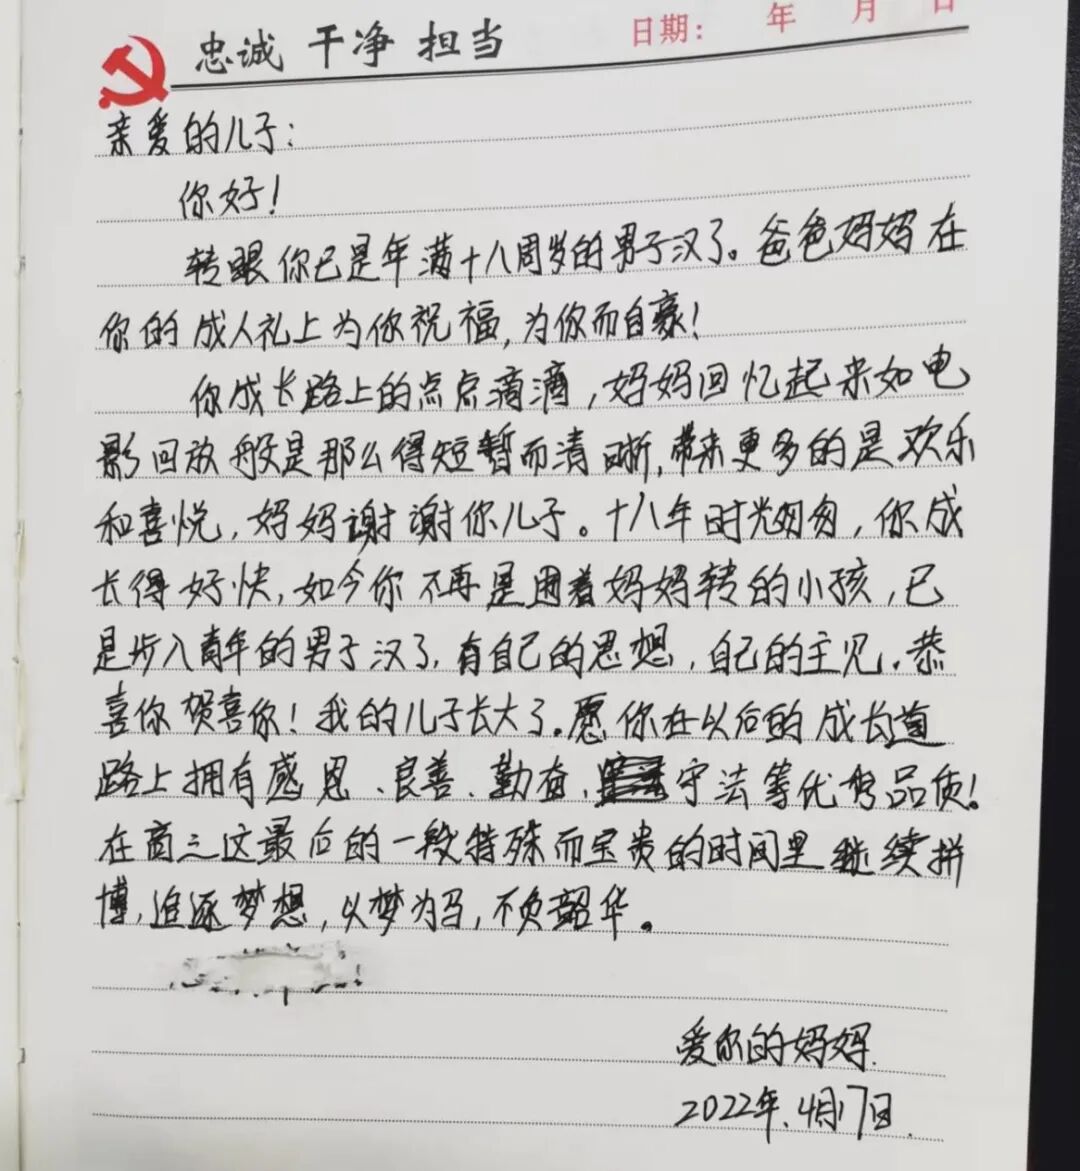 忠诚 干净 担当
日期: 年 月 日
亲爱的儿子:
你好!
转眼你已是年满十八周岁的男子汉了。爸爸妈妈在
你的成人礼上为你祝福,为你而自豪!
你成长路上的点点滴滴,妈妈回忆起来如电
影回放般是那么得短暂而清晰,带来更多的是欢乐
和喜悦,妈妈谢谢你儿子。十八年时光匆匆,你成
长得好快,如今你不再是围着妈妈转的小孩,已
是步入青年的男子汉了,有自己的思想,自己的主见。恭
喜你贺喜你!我的儿子长大了。愿你在以后的成长道
路上拥有感恩、良善、勤奋、守法等优秀品质!
在高三这最后的一段特殊而宝贵的时间里继续拼
搏,追逐梦想,以梦为马,不负韶华。
爱你的妈妈.
2022年.4月17日.